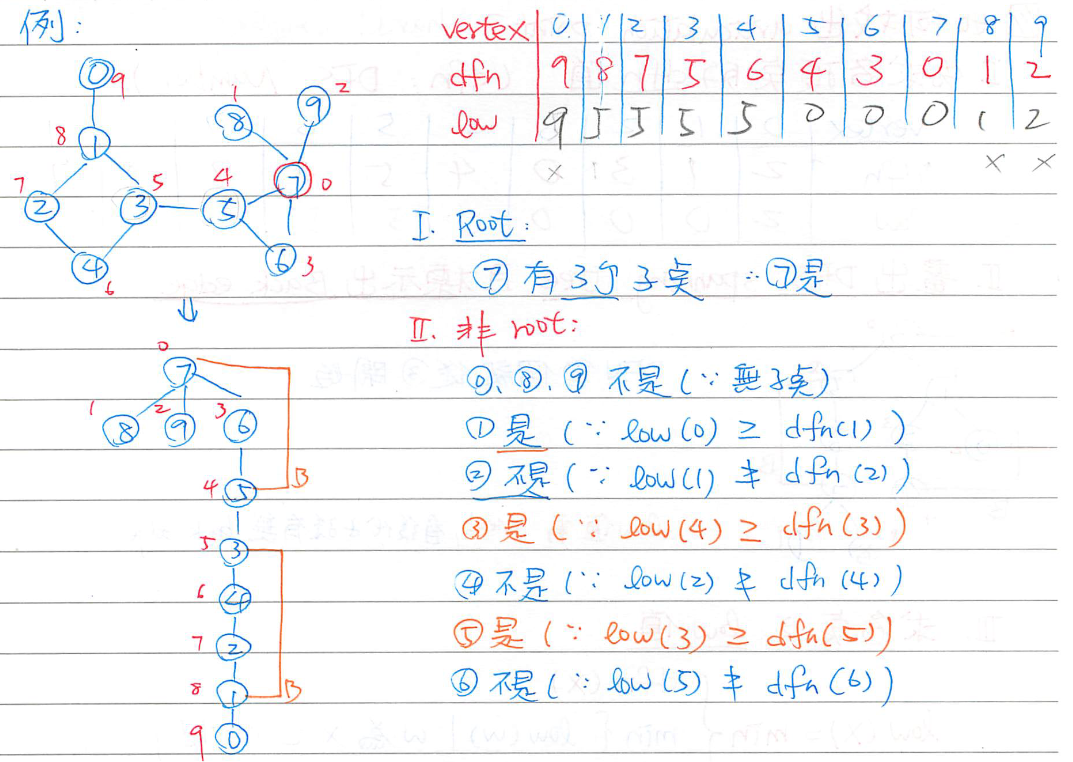 例:
vertex 0 1 2 3 4 5 6 7 8 9
dfn 9 8 7 5 6 4 3 0 1 2
low 9 5 5 5 5 0 0 0 1 2
x x x
0 9
1 8
2 7
3 5
4 6
5 4
6 3
7 0
8 1
9 2
I. Root:
⑦ 有3个子點 ∴⑦是
II. 非 root:
⓪、⑧、⑨ 不是(∵ 無子點)
①是 (∵ low(0) ≥ dfn(1))
②不是 (∵ low(1) ≱ dfn(2))
③是 (∵ low(4) ≥ dfn(3))
④不是 (∵ low(2) ≱ dfn(4))
⑤是 (∵ low(3) ≥ dfn(5))
⑥不是 (∵ low(5) ≱ dfn(6))
0 7
1 8 2 9 3 6
4 5 B
5 3
6 4
7 2
8 1 B
9 0